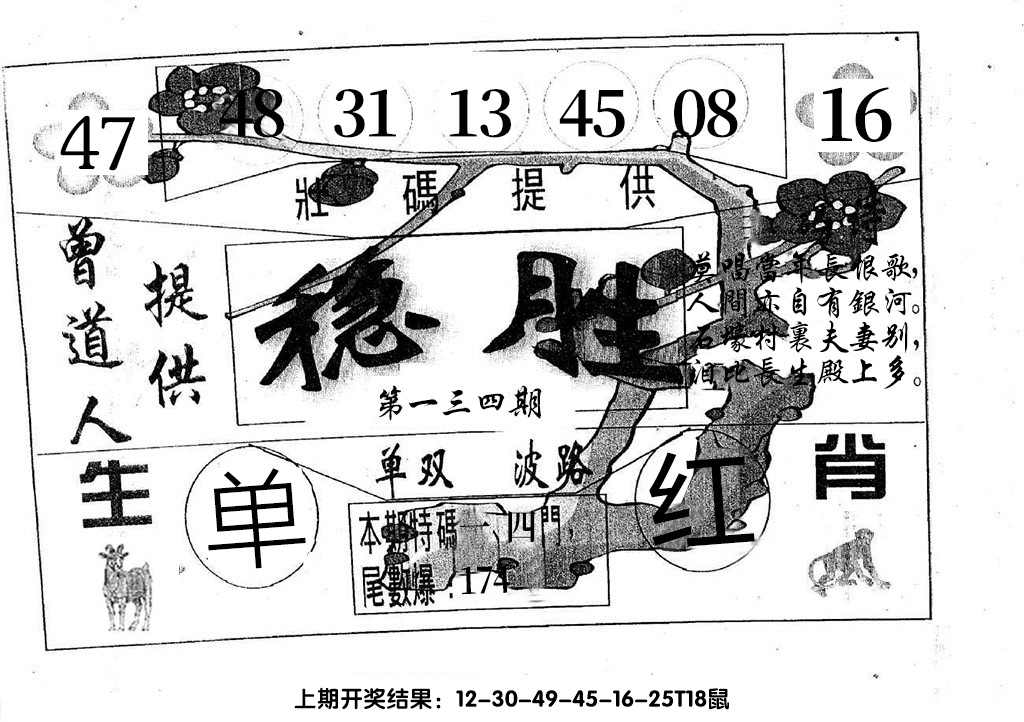 47 48 31 13 45 08 16
壯碼提供
特
曾道人
提供
稳胜
第一三四期
莫唱當年長恨歌，
人間亦自有銀河。
石壕村裏夫妻别，
泪比長生殿上多。
生肖
单双 波路
单
红
本期特碼一、四門，
尾數爆：174
上期开奖结果：12-30-49-45-16-25T18鼠